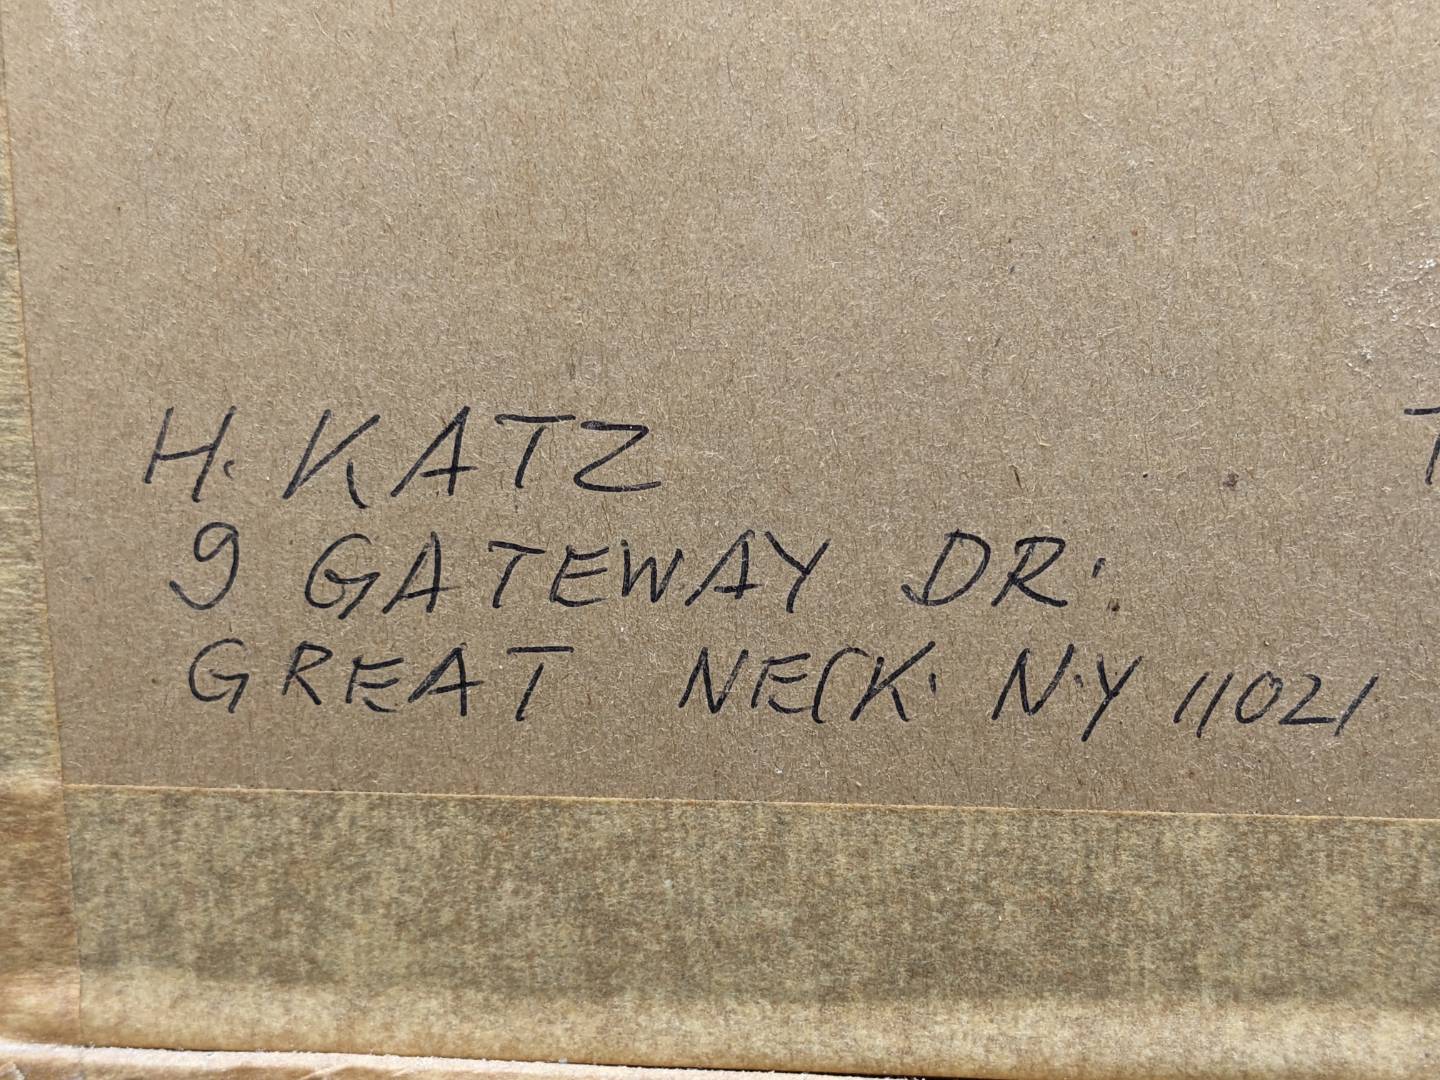 H. KATZ T
9 GATEWAY DR.
GREAT NECK. N.Y 11021